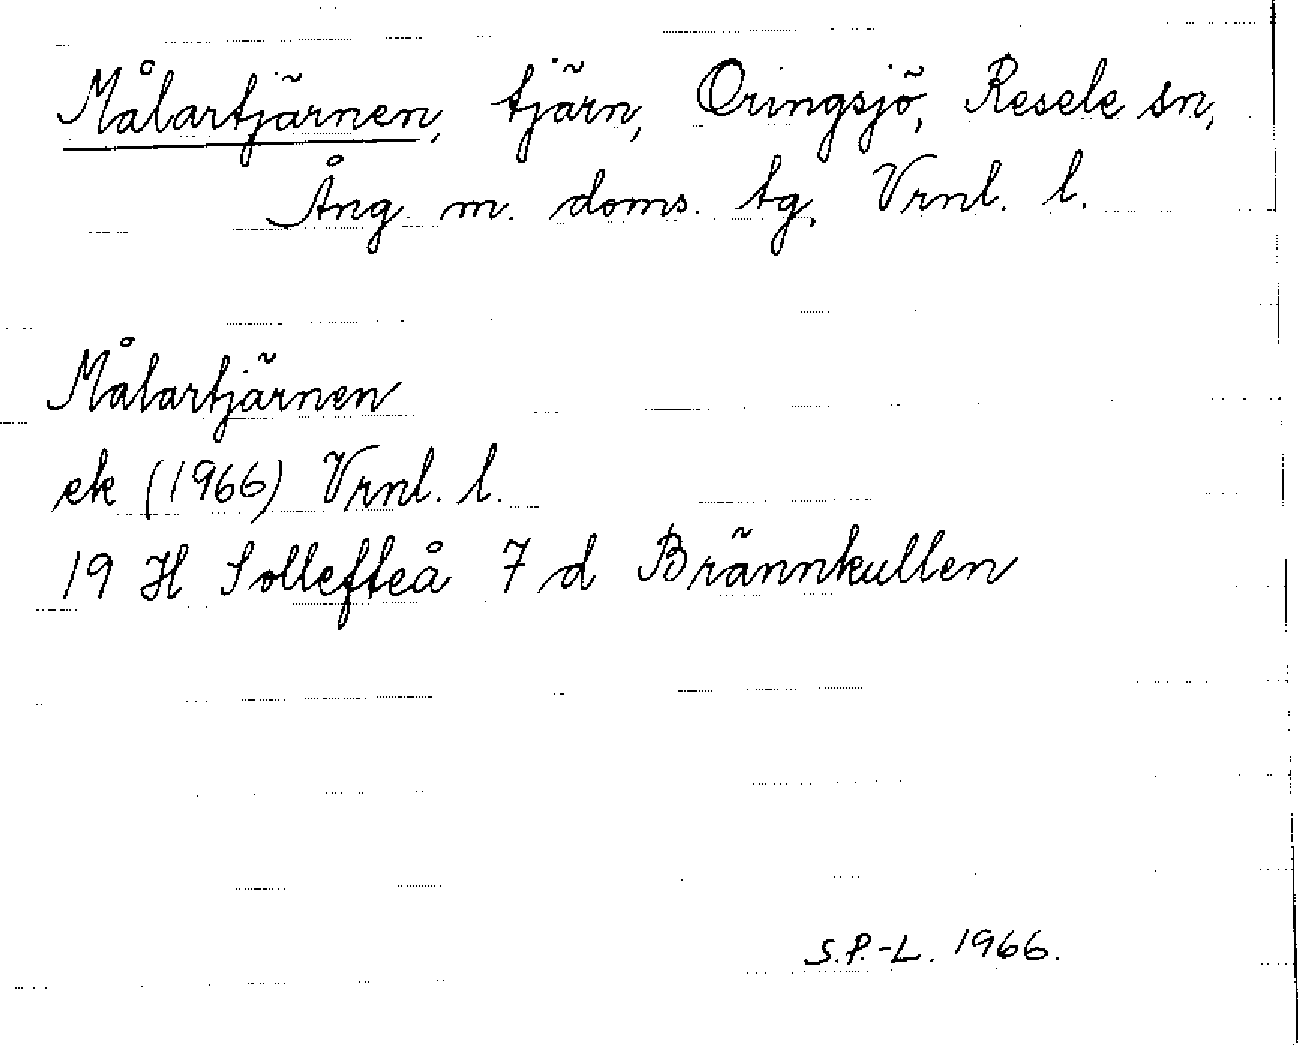 Målartjärnen, tjärn, Oringsjö, Resele sn,
Ång. m. doms. tg, Vrnl. l.
Målartjärnen
ek (1966) Vrnl. l.
19 H Sollefteå 7 d Brännkullen
S.P.-L. 1966.